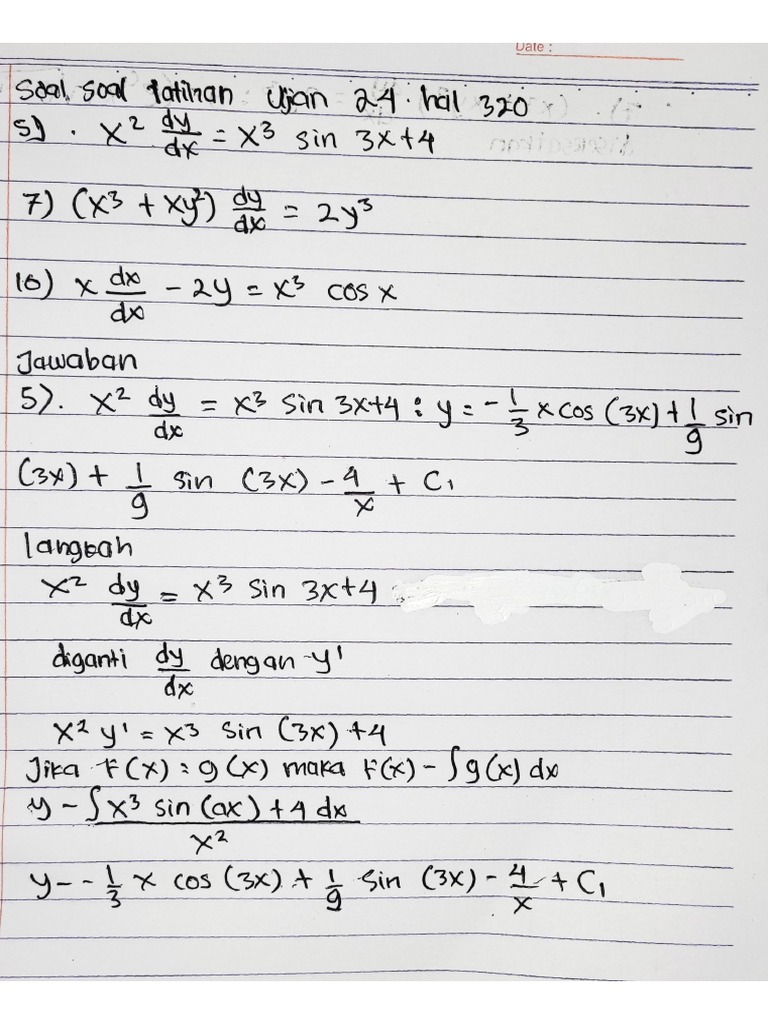 Date :
Soal soal latihan Ujian 24. hal 320
5) . x² dy/dx = x³ sin 3x+4
7) (x³ + xy²) dy/dx = 2y³
10) x dx/dx - 2y = x³ cos x
Jawaban
5). x² dy/dx = x³ sin 3x+4 : y = -1/3 x cos (3x) + 1/9 sin
(3x) + 1/9 sin (3x) - 4/x + C₁
langkah
x² dy/dx = x³ sin 3x+4
diganti dy/dx dengan y'
x² y' = x³ sin (3x) +4
Jika f(x) = g(x) maka f(x) - ∫g(x) dx
y - ∫x³ sin (ax) + 4 dx / x²
y - -1/3 x cos (3x) + 1/9 sin (3x) - 4/x + C₁